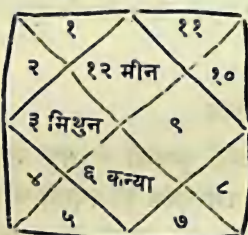 १ ११
२ १२ मीन १०
३ मिथुन ९
४ ६ कन्या ८
५ ७